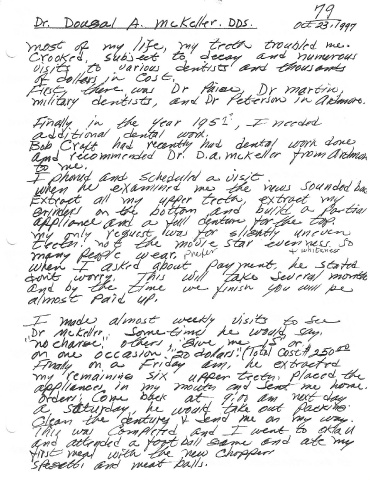 79
Dr. Dougal A. McKeller. DDS.
Oct 23, 1997
most of my life, my teeth troubled me.
Crooked, subject to decay and numerous
visits to various dentists and thousands
of dollars in cost.
First, there was Dr Paine, Dr Martin,
military dentists, and Dr Peterson in Ardmore.
Finally in the year 195 , I needed
additional dental work.
Bob Craft had recently had dental work done
and recommended Dr. D.A. McKeller from Ardmore
to me.
I phoned and scheduled a visit.
When he examined me the news sounded bad
Extract all my upper teeth, extract my
grinders on the bottom and build a partial
appliance and a full denture for the top.
my only request was for slightly uneven
teeth. not the movie star evenness. so
& whiteness
many people wear. prefer
when I asked about payment, he stated
don't worry. This will take several months
and by the time we finish you will be
almost paid up.
I made almost weekly visits to see
Dr McKeller. Sometime he would say,
"no charge", others, give me 15 or,
on one occasion "20 dollars". (Total Cost $250.00
Finally on a Friday am, he extracted
my remaining six upper teeth, placed the
appliances in my mouth and sent me home.
orders: Come back at 9:00 am next day
a Saturday, he would take out packing
clean the dentures & send me on my way.
This was completed and I went to
and attended a football game and ate my
first meal with the new chopper
spagetti and meat balls.